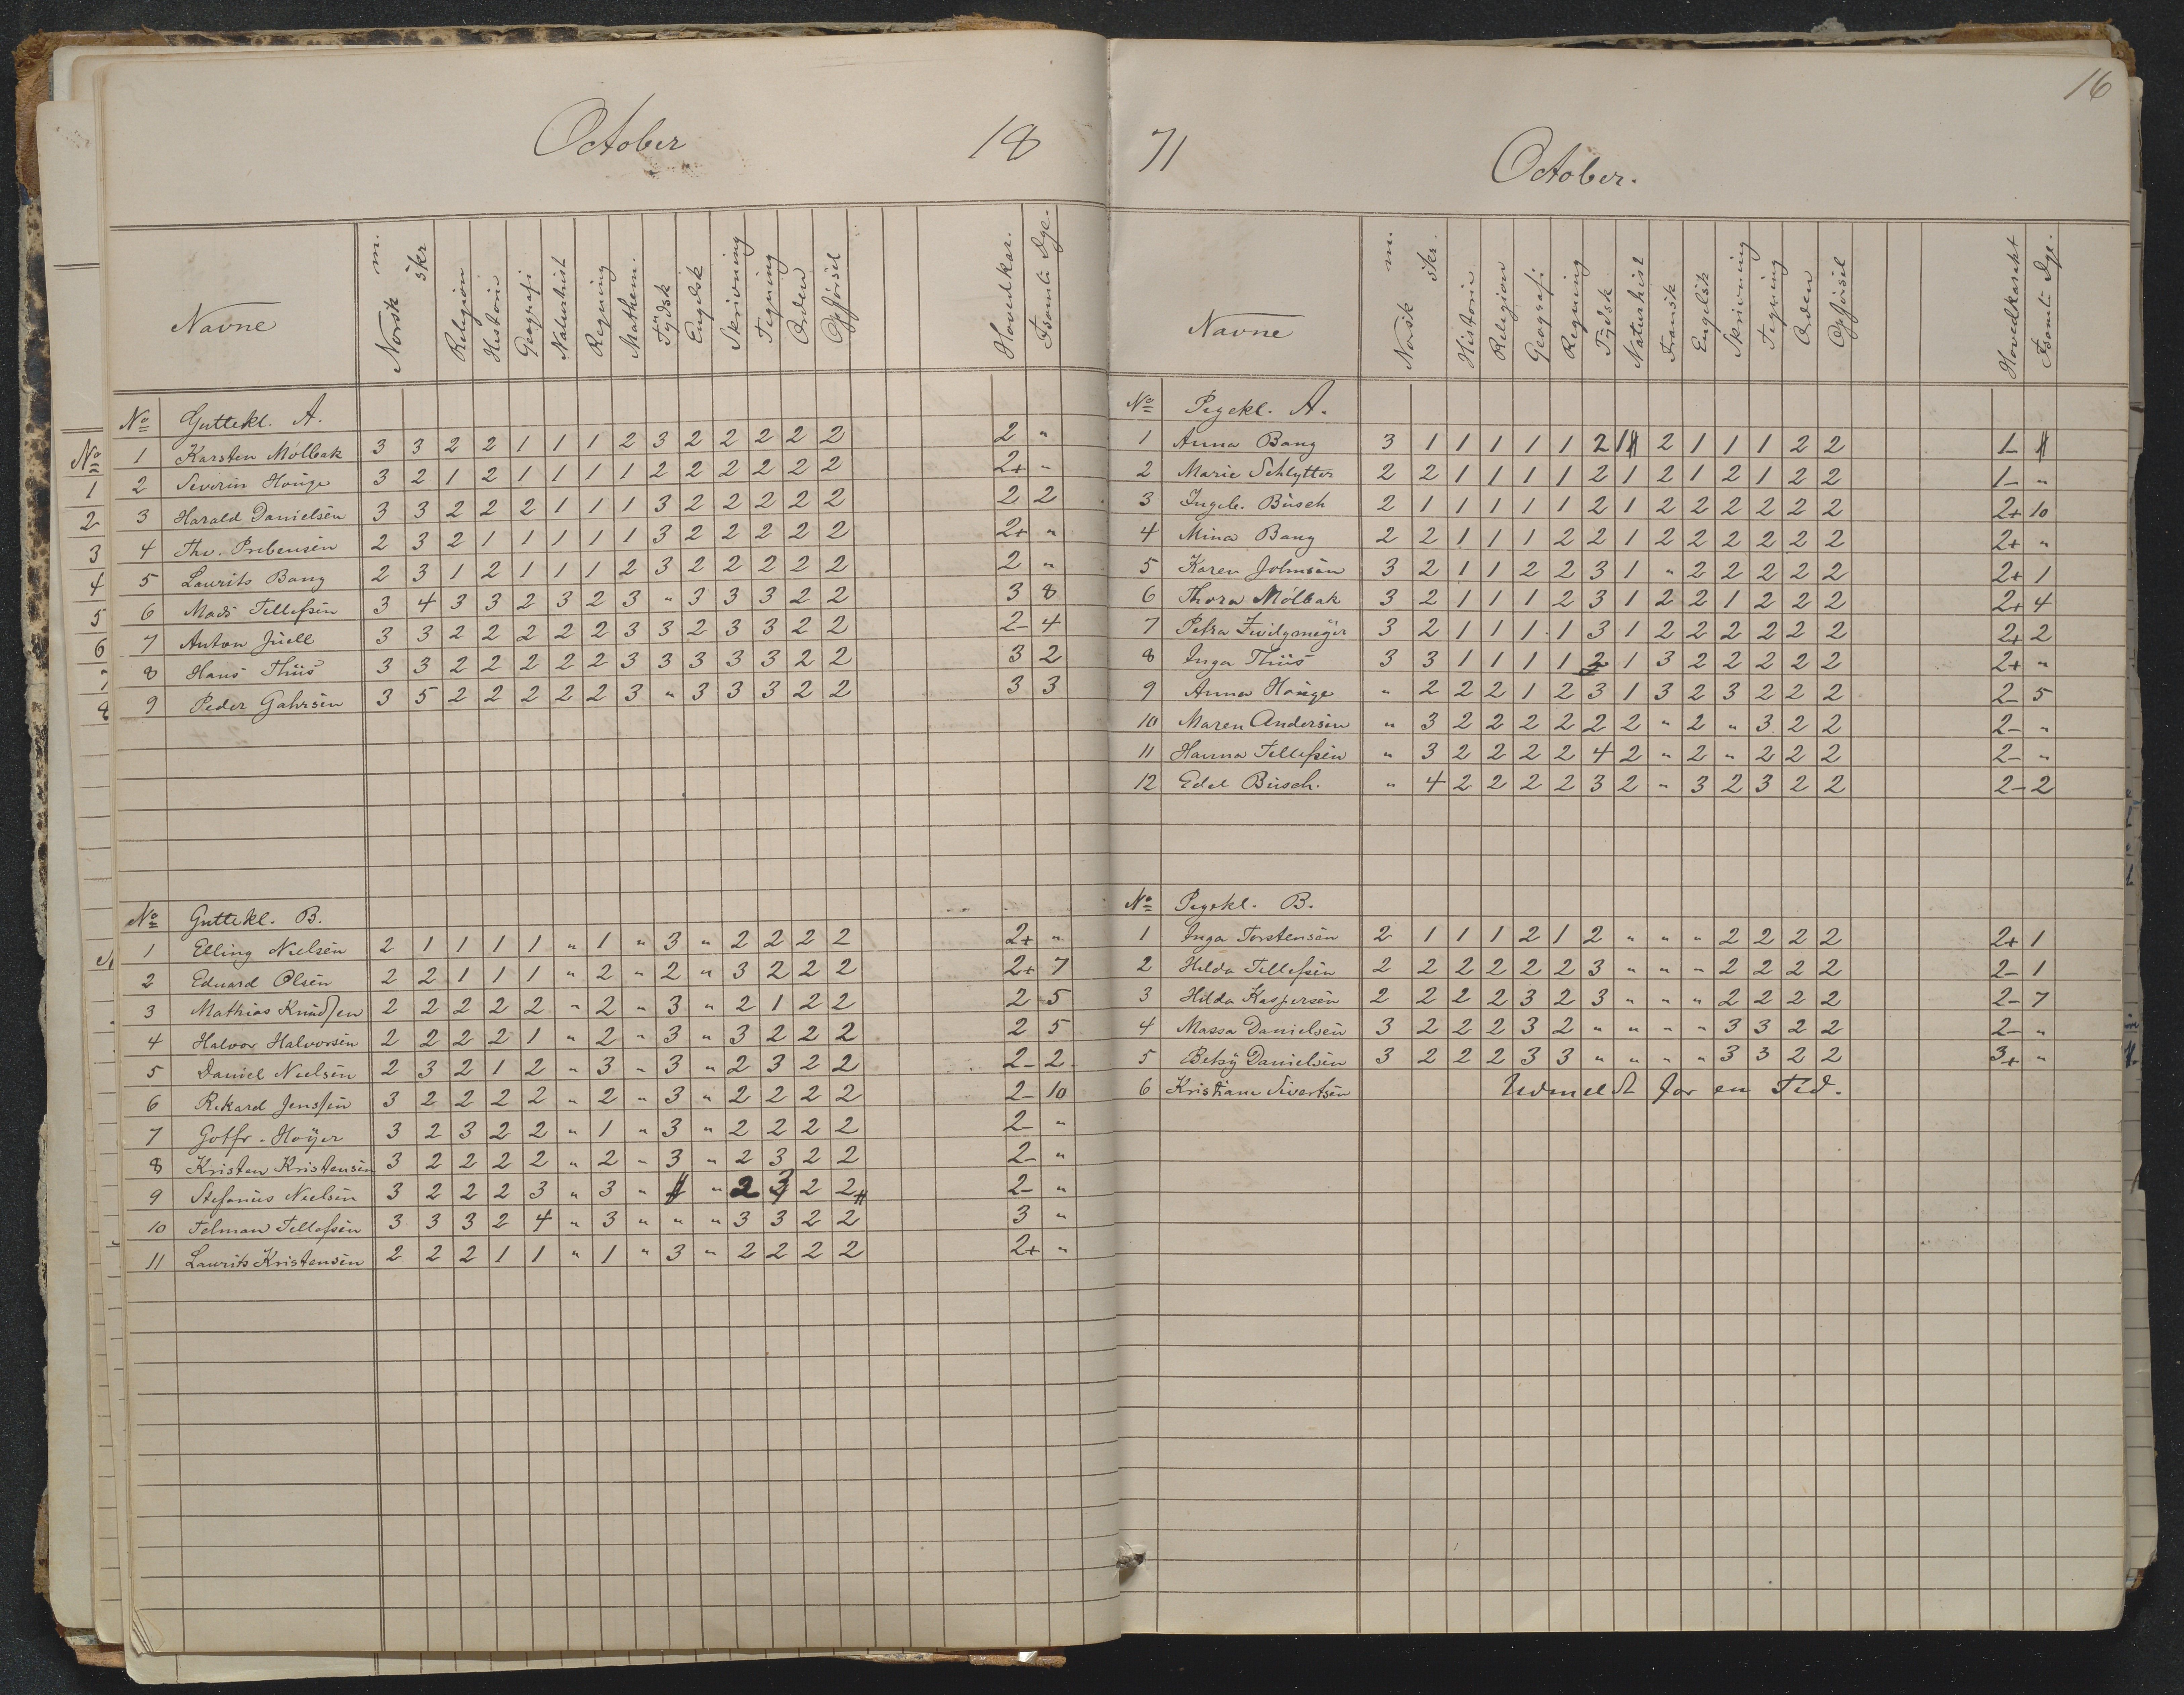 16
October 18
Navne Norsk m. skr Religion Historie Geografi Naturhist Regning Mathem. Tydsk Engelsk Skrivning Tegning Orden Opførsel Hovedkar. Fsömte Dge.
No Guttekl. A.
1 Karsten Mölbak 3 3 2 2 1 1 1 2 3 2 2 2 2 2 2 "
2 Severin Houge 3 2 1 2 1 1 1 1 2 2 2 2 2 2 2+ "
3 Harald Danielsen 3 3 2 2 2 1 1 1 3 2 2 2 2 2 2 2
4 Thv. Prebensen 2 3 2 1 1 1 1 1 3 2 2 2 2 2 2+ "
5 Laurits Bang 2 3 1 2 1 1 1 2 3 2 2 2 2 2 2 "
6 Mads Tellefsen 3 4 3 3 2 3 2 3 " 3 3 3 2 2 3 8
7 Anton Juell 3 3 2 2 2 2 2 3 3 2 3 3 2 2 2- 4
8 Hans Thiis 3 3 2 2 2 2 2 3 3 3 3 3 2 2 3 2
9 Peder Gahrsen 3 5 2 2 2 2 2 3 " 3 3 3 2 2 3 3
No Guttekl. B.
1 Elling Nielsen 2 1 1 1 1 " 1 " 3 " 2 2 2 2 2+ "
2 Eduard Olsen 2 2 1 1 1 " 2 " 2 " 3 2 2 2 2+ 7
3 Mathias Knudsen 2 2 2 2 2 " 2 " 3 " 2 1 2 2 2 5
4 Halvor Halvorsen 2 2 2 2 1 " 2 " 3 " 3 2 2 2 2 5
5 Daniel Nielsen 2 3 2 1 2 " 3 " 3 " 2 3 2 2 2- 2
6 Rikard Jenssen 3 2 2 2 2 " 2 " 3 " 2 2 2 2 2- 10
7 Gotfr. Hoÿer 3 2 3 2 2 " 1 " 3 " 2 2 2 2 2- "
8 Kristen Kristensen 3 2 2 2 2 " 2 " 3 " 2 3 2 2 2- "
9 Stefanus Nielsen 3 2 2 2 3 " 3 " " 2 3 2 2 2- "
10 Telman Tellefsen 3 3 3 2 4 " 3 " " " 3 3 2 2 3 "
11 Laurits Kristensen 2 2 2 1 1 " 1 " 3 " 2 2 2 2 2+ "
71 October.
Navne Norsk m. skr. Historie Religion Geografi Regning Tydsk Naturhist Fransk Engelsk Skrivning Tegning Orden Opførsel Hovedkarakt Fsomte Dge.
No Pigekl. A.
1 Anna Bang 3 1 1 1 1 1 2 1 2 1 1 1 2 2 1-
2 Marie Schlytter 2 2 1 1 1 1 2 1 2 1 2 1 2 2 1- "
3 Ingeb. Busch 2 1 1 1 1 1 2 1 2 2 2 2 2 2 2+ 10
4 Mina Bang 2 2 1 1 1 2 2 1 2 2 2 2 2 2 2+ "
5 Karen Johnsen 3 2 1 1 2 2 3 1 " 2 2 2 2 2 2+ 1
6 Thora Mölbak 3 2 1 1 1 2 3 1 2 2 1 2 2 2 2+ 4
7 Petra Zwilgmeÿer 3 2 1 1 1 1 3 1 2 2 2 2 2 2 2+ 2
8 Inga Thiis 3 3 1 1 1 1 2 1 3 2 2 2 2 2 2+ "
9 Anna Houge " 2 2 2 1 2 3 1 3 2 3 2 2 2 2- 5
10 Maren Andersen " 3 2 2 2 2 2 2 " 2 " 3 2 2 2- "
11 Hanna Tellefsen " 3 2 2 2 2 4 2 " 2 " 2 2 2 2- "
12 Edel Busch. " 4 2 2 2 2 3 2 " 3 2 3 2 2 2- 2
No Pigekl. B.
1 Inga Torstensen 2 1 1 1 2 1 2 " " " 2 2 2 2 2+ 1
2 Hilda Tellefsen 2 2 2 2 2 2 3 " " " 2 2 2 2 2- 1
3 Hilda Kaspersen 2 2 2 2 3 2 3 " " " 2 2 2 2 2- 7
4 Massa Danielsen 3 2 2 2 3 2 " " " " 3 3 2 2 2- "
5 Betsÿ Danielsen 3 2 2 2 3 3 " " " " 3 3 2 2 3+ "
6 Kristiane Sivertsen Udmeldt for en Tid.